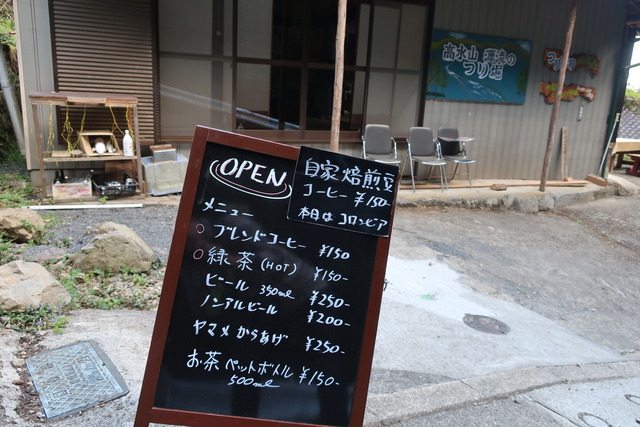 高水山 渓流の
つり堀
OPEN
自家焙煎豆
コーヒー ¥150-
本日は コロンビア
メニュー
○ブレンドコーヒー ¥150
○緑茶(HOT) ¥150-
ビール 350ml ¥250-
ノンアルビール ¥200-
ヤマメ からあげ ¥250-
お茶 ペットボトル ¥150-
500ml